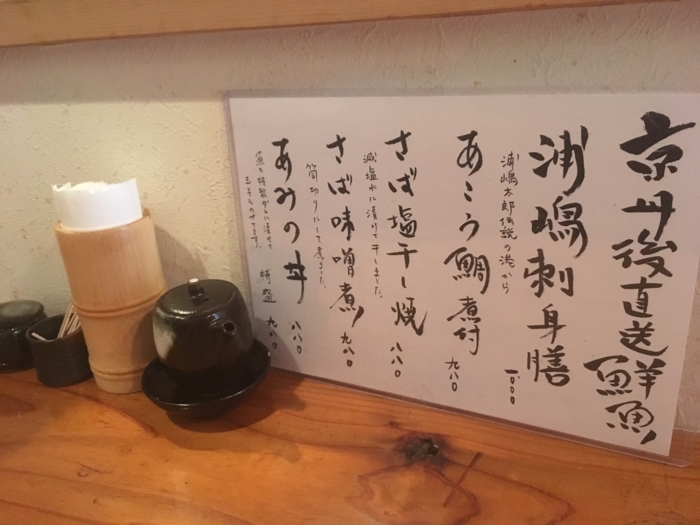 京丹後直送鮮魚
浦嶋刺身膳
浦嶋太郎伝説の港から
一、〇〇〇
あこう鯛煮付
九八〇
さば塩干し焼
八八〇
減塩水に漬けて干しました。
さば味噌煮
九八〇
筒切りにして煮ました。
あみの丼
八八〇
特盛 九八〇